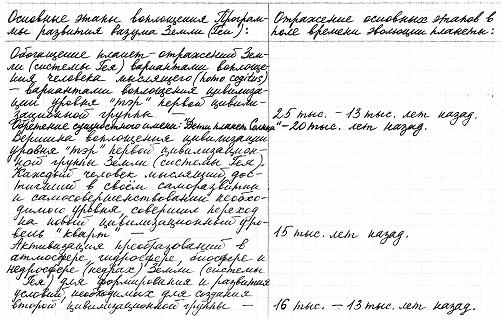 Основные этапы воплощения Програм-
мы развития Разума Земли (Геи):
Отражение основных этапов в
поле времени эволюции планеты:
Обогащение планет-отражений Зем-
ли (системы Гея) вариантами воплоще-
ния человека мыслящего (homo cogitus)
– вариантами воплощения цивилиза-
ции уровня "тэр" первой цивили-
зационной группы –
25 тыс. – 13 тыс. лет назад.
Обретение сущностного имени: Дети планет Солнца
– 20 тыс. лет назад.
Вершина воплощения цивилизации
уровня "тэр" первой цивилизацион-
ной группы Земли (системы Гея).
Каждый человек мыслящий, дос-
тигший в своём саморазвитии
и самосовершенствовании необхо-
димого уровня, совершил переход
на новый цивилизационный уро-
вень "кварт" –
15 тыс. лет назад.
Активизация преобразований в
атмосфере, гидросфере, биосфере и
недросфере (недрах) Земли (системы
Гея) для формирования и развития
условий, необходимых для создания
второй цивилизационной группы –
16 тыс. – 13 тыс. лет назад.